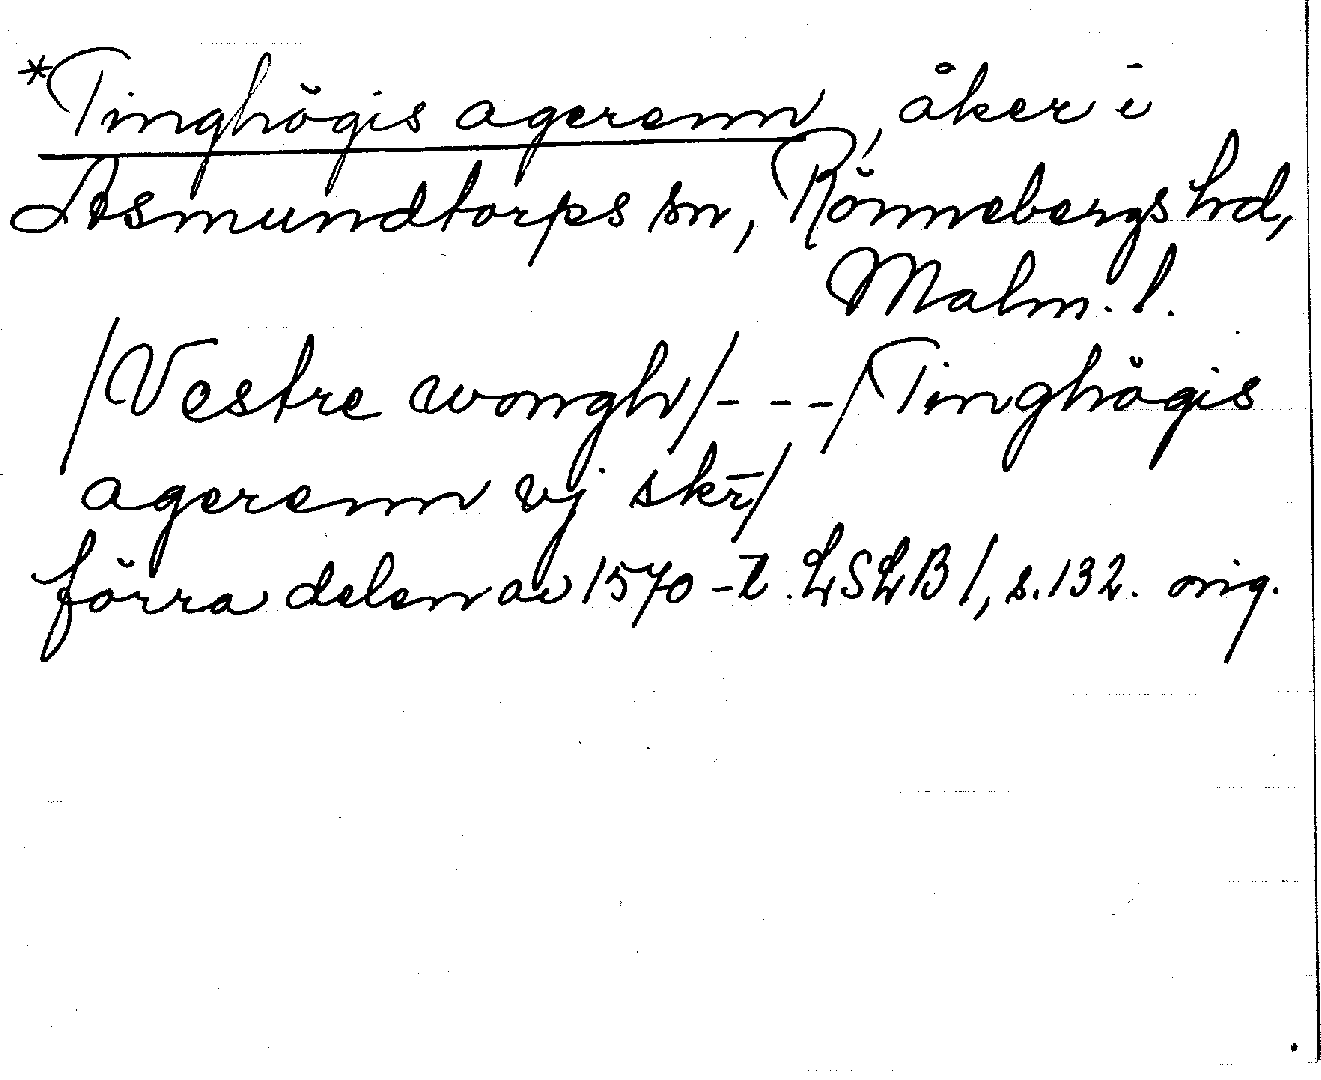 *Tinghögis agerenn, åker i
Asmundtorps sn, Rönnebergs hd,
Malm. l.
/Vestre wongh/- - -/Tinghögis
agerenn vj skr̄/
förra delen av 1570-t. LSLB 1, s. 132. orig.